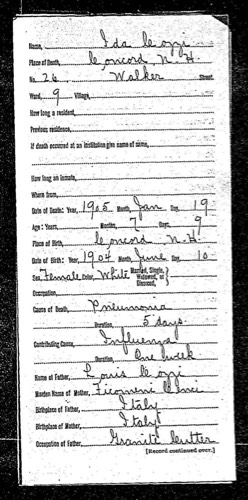 Name, Ida Cozzi
Place of Death, Concord, N.H.
No. 26, Walker Street.
Ward, 9 Village,
How long a resident,
Previous residence,
If death occurred at an institution give name of same,
How long an inmate,
Where from,
Date of Death: Year, 1905 Month, Jan Day, 19
Age: Years, Months, 7 Days, 9
Place of Birth, Concord N.H.
Date of Birth: Year, 1904 Month, June Day, 10
Sex, Female Color, White Married, Single, Widowed, or Divorced,
Occupation,
Cause of Death, Pneumonia
Duration, 5 days
Contributing Cause, Influenza
Duration, One week
Name of Father, Louis Cozzi
Maiden Name of Mother,
Birthplace of Father, Italy
Birthplace of Mother, Italy
Occupation of Father, Granite Cutter
[Record continued over.]